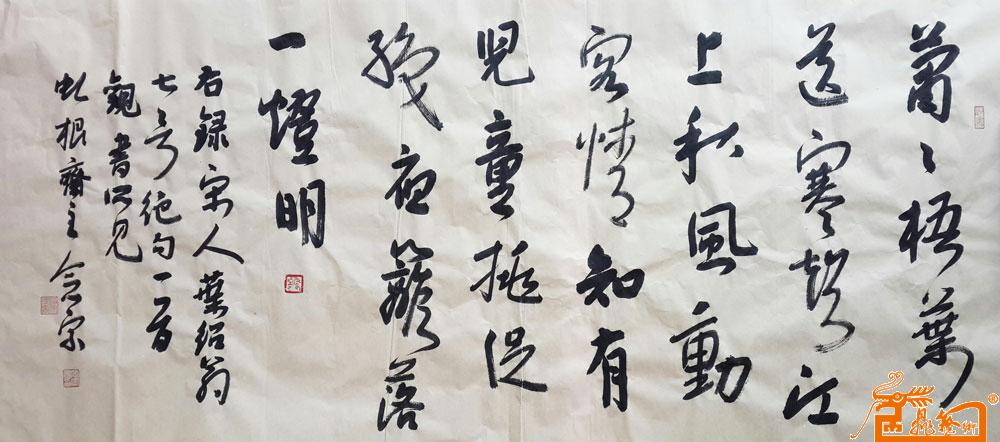 蕭〻梧葉
送寒聲江
上秋風動
客情知有
兒童挑促
織夜籬落
一燈明
右録宋人葉紹翁
七言絶句一首
觀書所见
虬根齋主念宗